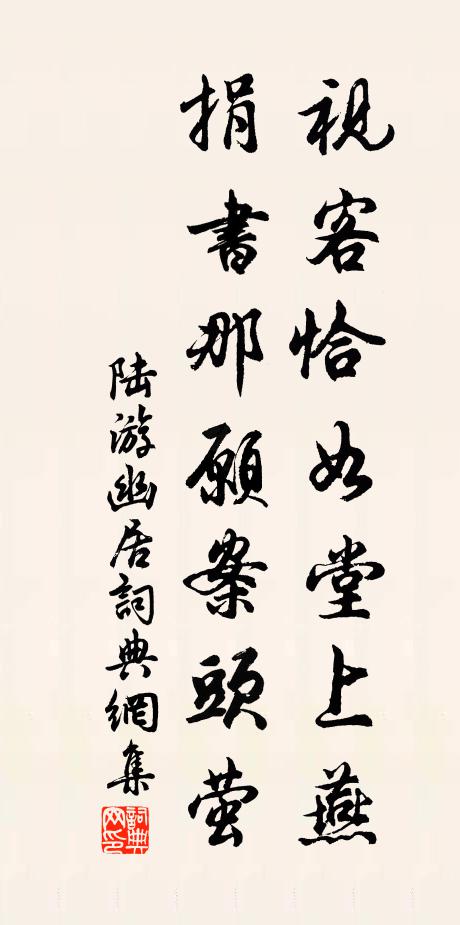 視客恰如堂上燕
捐書那願案頭螢
陸游幽居詞典網集
詞典網印